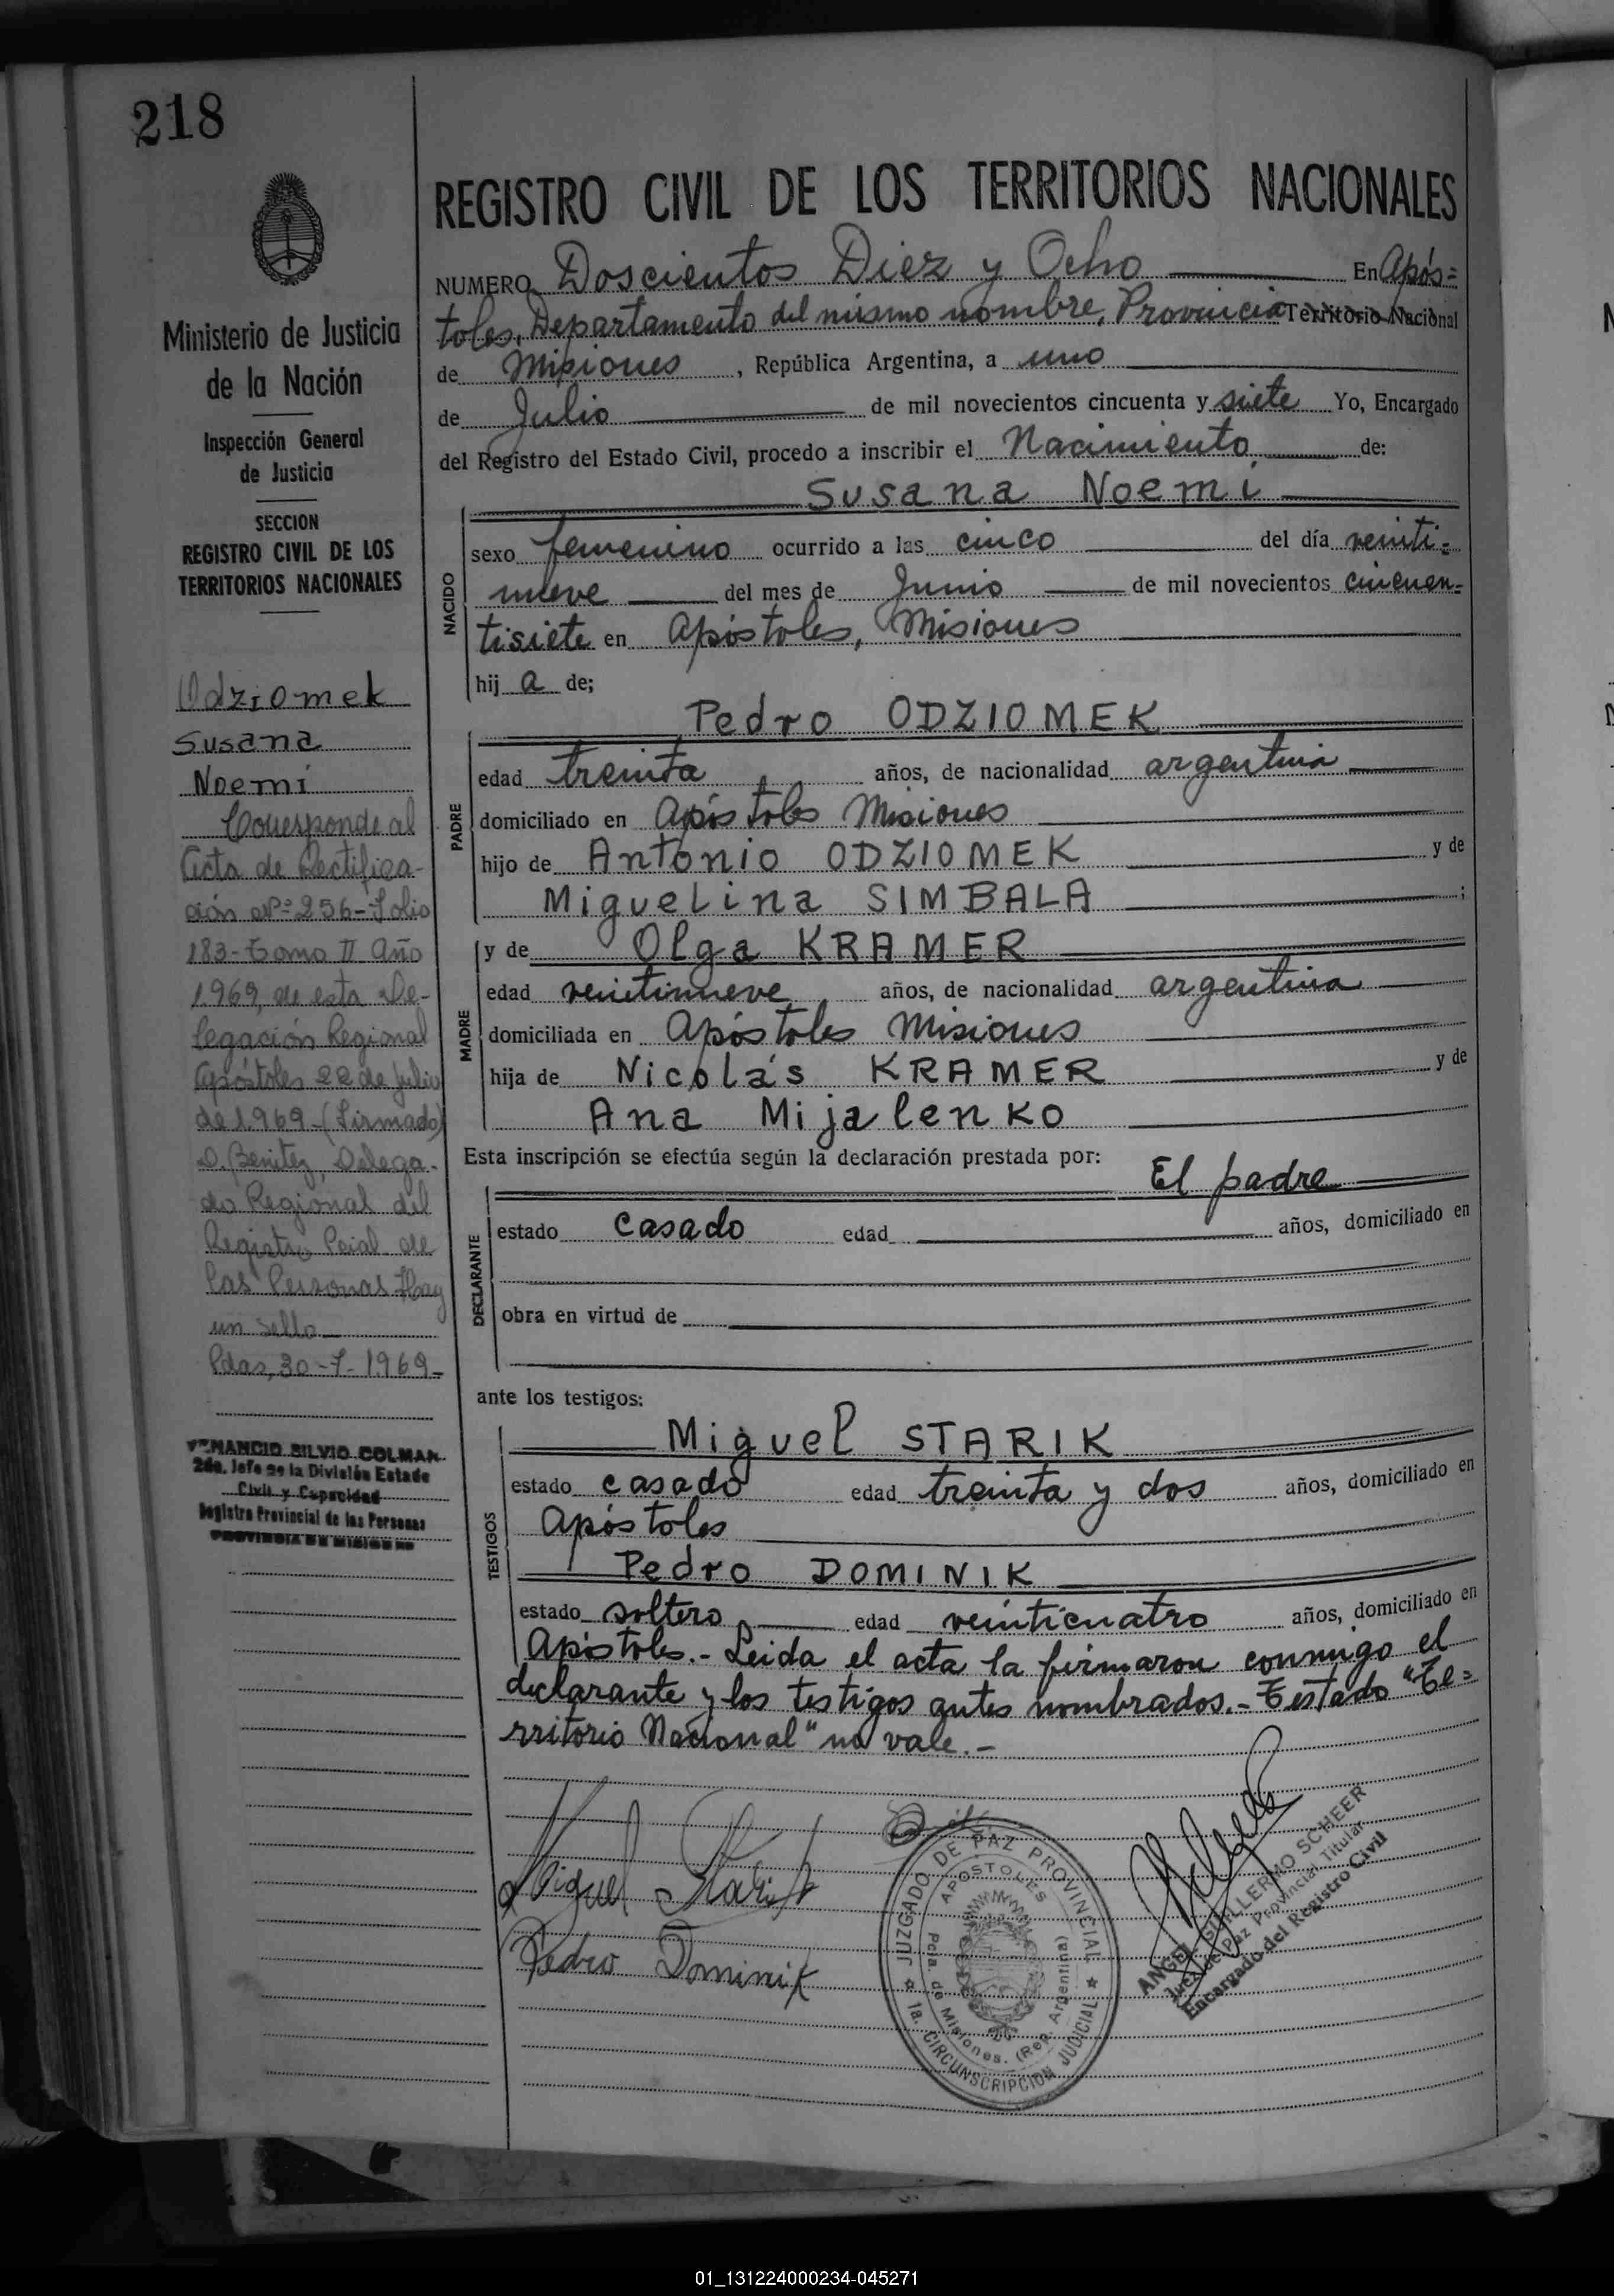 218
Ministerio de Justicia
de la Nación
Inspección General
de Justicia
SECCION
REGISTRO CIVIL DE LOS
TERRITORIOS NACIONALES
Odziomek
Susana
Noemí
Corresponde al
Acta de Rectifica-
ción Nº 256-Folio
183-Tomo II Año
1.969, de esta De-
legación Regional
Apóstoles 22 de Julio
de 1.969-(Firmado)
D. Benitez, Delega-
do Regional del
Registro Pcial. de
las Personas Hay
un sello
Pdas, 30-7-1.969-
VENANCIO SILVIO COLMAN
2do. Jefe de la División Estado
Civil y Capacidad
Registro Provincial de las Personas
PROVINCIA DE MISIONES
REGISTRO CIVIL DE LOS TERRITORIOS NACIONALES
NUMERO Doscientos Diez y Ocho En Após=
toles, Departamento del mismo nombre, Provincia Territorio Nacional
de Misiones, República Argentina, a uno
de Julio de mil novecientos cincuenta y siete Yo, Encargado
del Registro del Estado Civil, procedo a inscribir el Nacimiento de:
Susana Noemi
NACIDO
sexo femenino ocurrido a las cinco del día veinti-
nueve del mes de Junio de mil novecientos cincuen-
tisiete en Apóstoles, Misiones
hij a de;
Pedro ODZIOMEK
PADRE
edad treinta años, de nacionalidad argentina
domiciliado en Apóstoles Misiones
hijo de Antonio ODZIOMEK y de
Miguelina SIMBALA ;
y de Olga KRAMER
MADRE
edad veintinueve años, de nacionalidad argentina
domiciliada en Apóstoles Misiones
hija de Nicolás KRAMER y de
Ana Mijalenko
Esta inscripción se efectúa según la declaración prestada por:
El padre
DECLARANTE
estado casado edad años, domiciliado en
obra en virtud de
ante los testigos:
Miguel STARIK
TESTIGOS
estado casado edad treinta y dos años, domiciliado en
Apóstoles
Pedro DOMINIK
estado soltero edad veinticuatro años, domiciliado en
Apóstoles.- Leida el acta la firmaron conmigo el
declarante y los testigos antes nombrados.- Testado "Te=
rritorio Nacional" no vale.-
Miguel Starik
Pedro Dominik
JUZGADO DE PAZ PROVINCIAL
APOSTOLES
Pcia. de Misiones. (Rep. Argentina)
1a. CIRCUNSCRIPCION JUDICIAL
ANGEL GUILLERMO SCHEER
Juez de Paz Provincial Titular
Encargado del Registro Civil
01_131224000234-045271